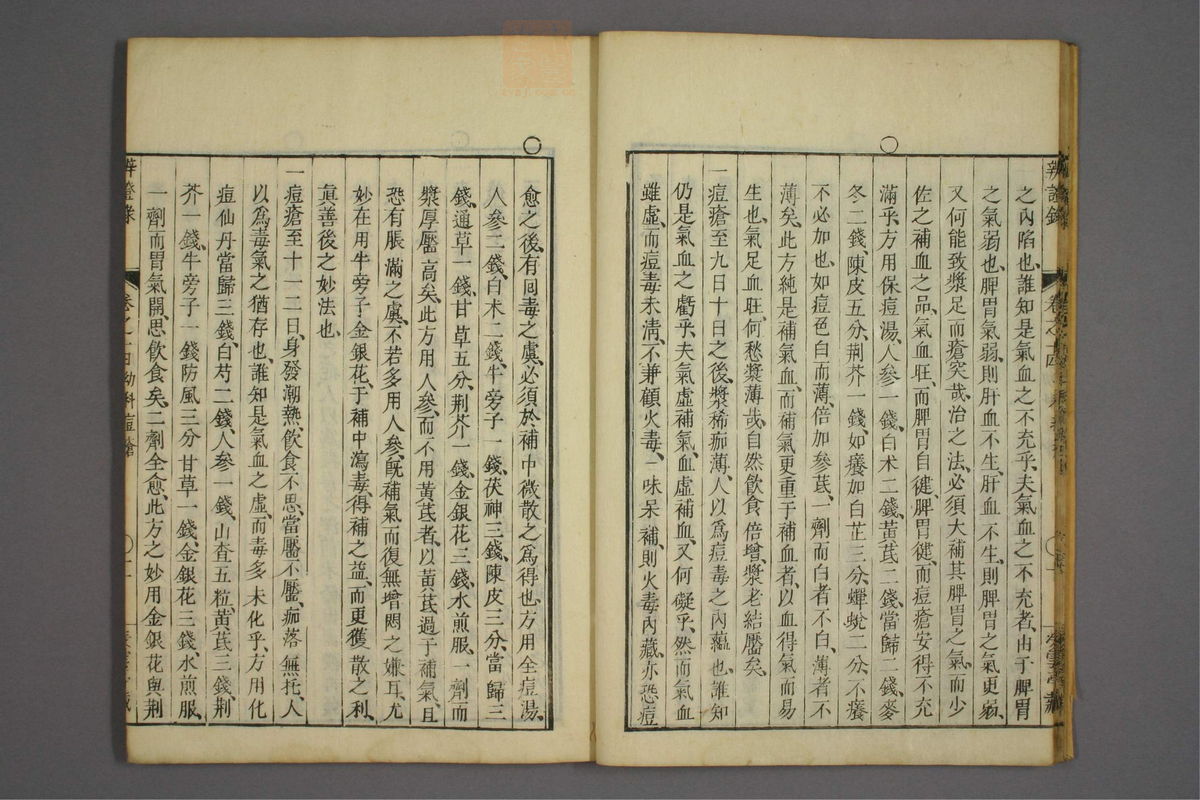 之內陷也誰知是氣血之不充乎夫氣血之不充者由于脾胃
之氣弱也脾胃氣弱則肝血不生肝血不生則脾胃之氣更弱
又何能致漿足而瘡突哉治之法必須大補其脾胃之氣而少
佐之補血之品氣血旺而脾胃自健脾胃健而痘瘡安得不充
滿乎方用保痘湯人參一錢白朮二錢黃芪二錢當歸二錢麥
冬二錢陳皮五分荊芥一錢如癢加白芷三分蟬蛻二分不癢
不必加也如痘色白而薄倍加參芪一劑而白者不白薄者不
薄矣此方純是補氣血而補氣更重于補血者以血得氣而易
生也氣足血旺何愁漿薄哉自然飲食倍增漿老結靨矣
一痘瘡至九日十日之後漿稀痂薄人以爲痘毒之內蘊也誰知
仍是氣血之虧乎夫氣虛補氣血虛補血又何礙乎然而氣血
雖虛而痘毒未清不兼顧火毒一味呆補則火毒內藏亦恐痘
愈之後有回毒之虞必須於補中微散之爲得也方用全痘湯
人參二錢白朮二錢牛旁子一錢茯神三錢陳皮三分當歸三
錢通草一錢甘草五分荊芥一錢金銀花三錢水煎服一劑而
漿厚靨高矣此方用人參而不用黃芪者以黃芪過于補氣且
恐有脹滿之虞不若多用人參旣補氣而復無增悶之嫌耳尤
妙在用牛旁子金銀花于補中瀉毒得補之益而更獲散之利
眞善後之妙法也
一痘瘡至十一二日身發潮熱飲食不思當靨不靨痂落無托人
以爲毒氣之猶存也誰知是氣血之虛而毒多未化乎方用化
痘仙丹當歸三錢白芍二錢人參一錢山查五粒黃芪三錢荊
芥一錢牛旁子一錢防風三分甘草一錢金銀花三錢水煎服
一劑而胃氣開思飲食矣二劑全愈此方之妙用金銀花與荊
辨證錄
卷之十四幼科痘瘡